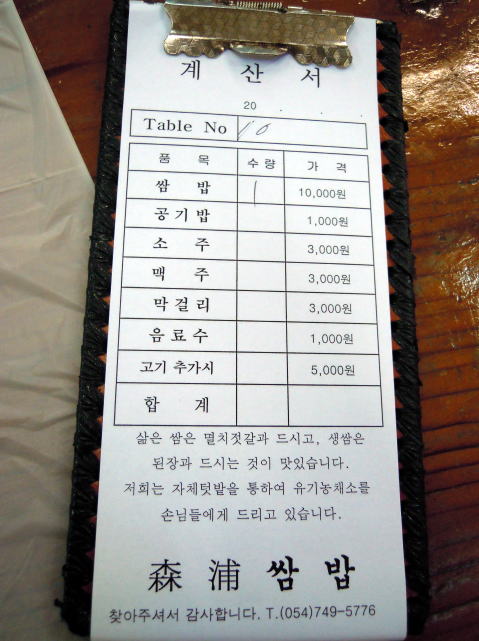 계 산 서
20 . . .
Table No 10
품 목 수량 가 격
쌈 밥 1 10,000원
공기밥 1,000원
소 주 3,000원
맥 주 3,000원
막걸리 3,000원
음료수 1,000원
고기 추가시 5,000원
합 계
삶은 쌈은 멸치젓갈과 드시고, 생쌈은
된장과 드시는 것이 맛있습니다.
저희는 자체텃밭을 통하여 유기농채소를
손님들에게 드리고 있습니다.
森 浦 쌈 밥
찾아주셔서 감사합니다. T.(054)749-5776